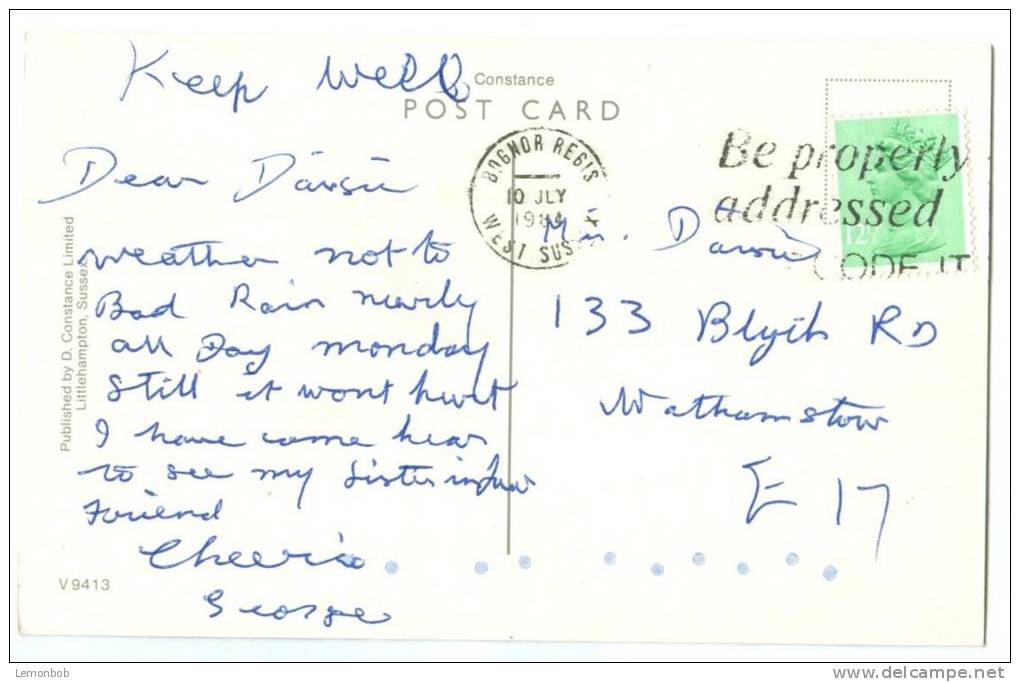 Keep well
Constance
POST CARD
BOGNOR REGIS
10 JLY
1984
WEST SUSSEX
Be properly
addressed
CODE IT
12½
Dear
weather not to
Bad Rain nearly
all Day monday
still it wont hurt
I have come hear
to see my Sister in law
Friend
Cheerio
George
133 Blyth RD
Walthamstow
E 17
Published by D. Constance Limited
Littlehampton, Sussex
V9413
Lemonbob
www.delcampe.net